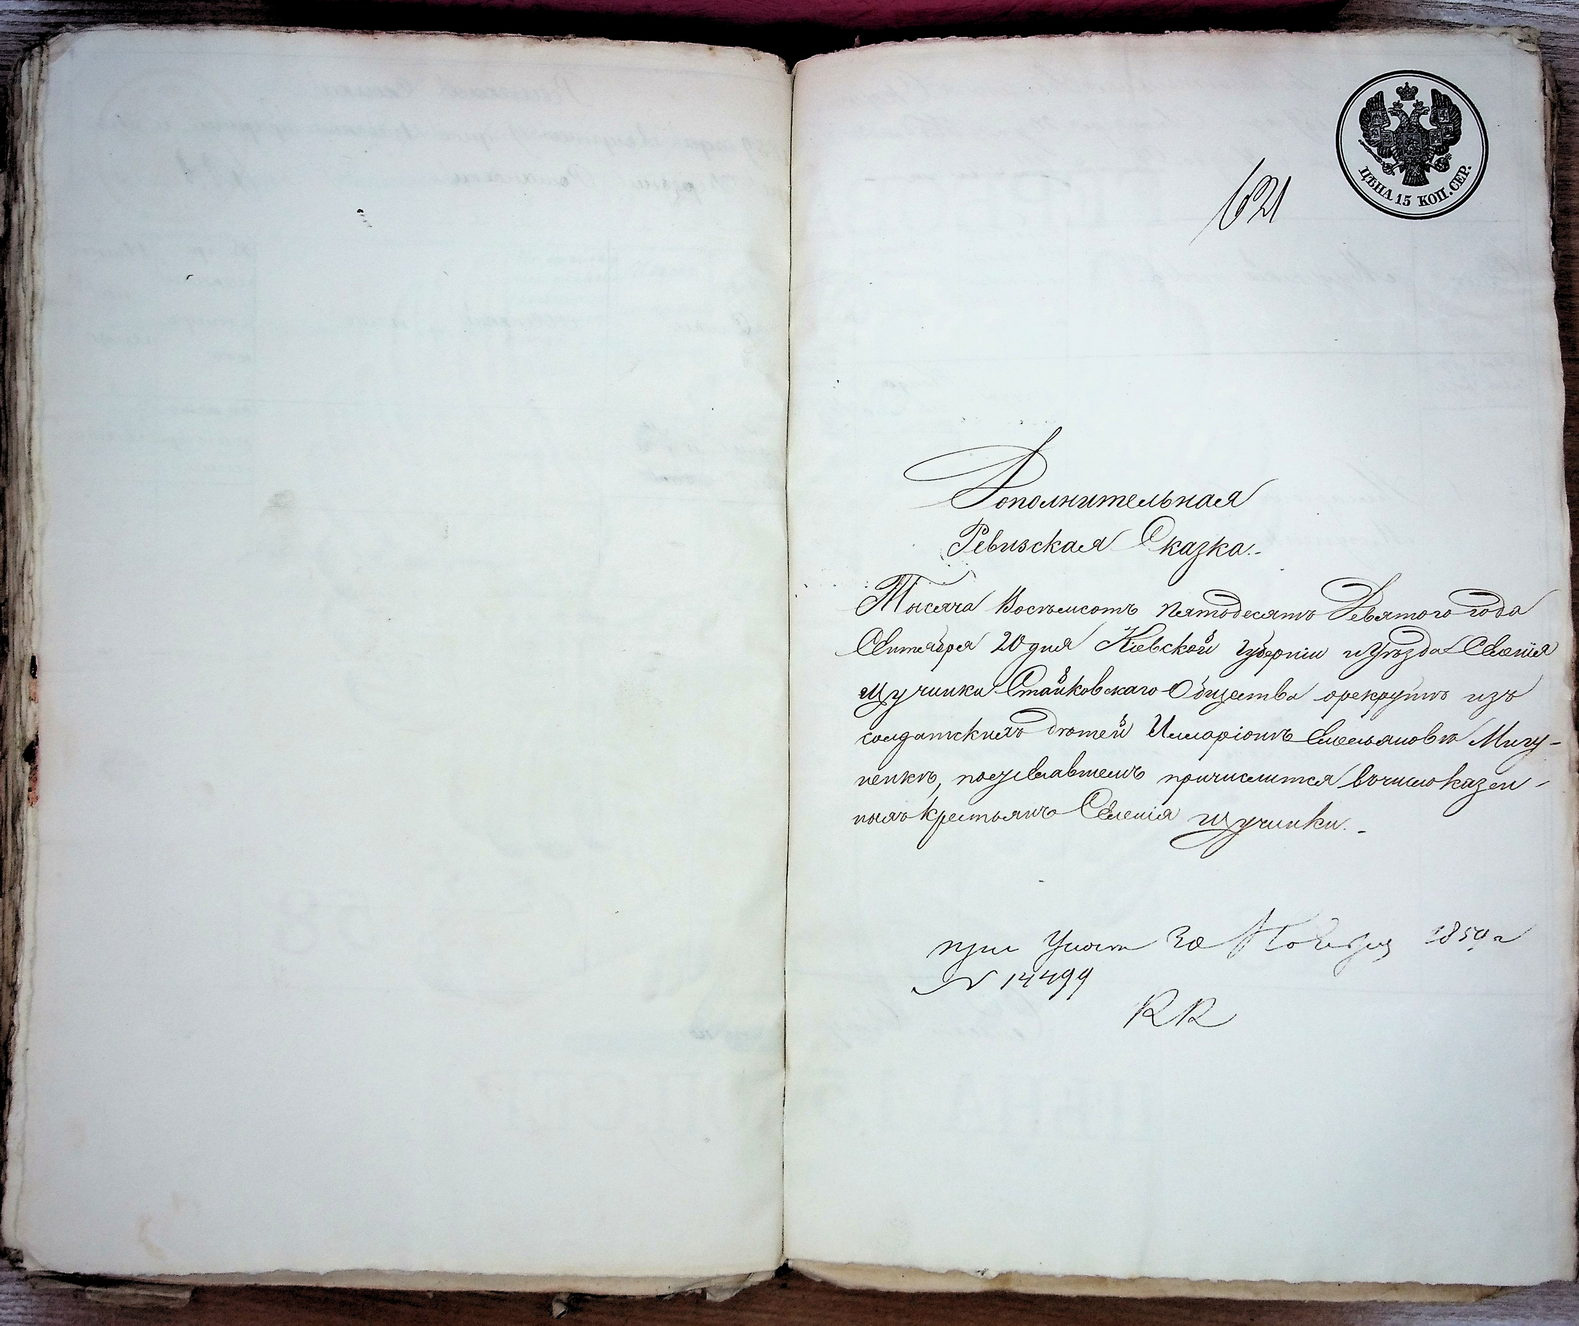 ЦѢНА 15 КОП. СЕР.
621
Дополнительная
Ревизская Сказка.
Тысяча Восѣмсотъ пятьдесятъ Девятого года
Сентября 20 дня Кіевской Губерніи и Уѣзда Селенія
Щучинки Стайковскаго Общества орекрутѣ изъ
солдатскихъ дѣтей Илларіонѣ Емельяновѣ Мигу-
ненкѣ, поизъявившемъ причислится вочисло казен-
ныхъ крестьянъ Селенія Щучинки.
при Указѣ 30 Ноября 1859 г
N 14499